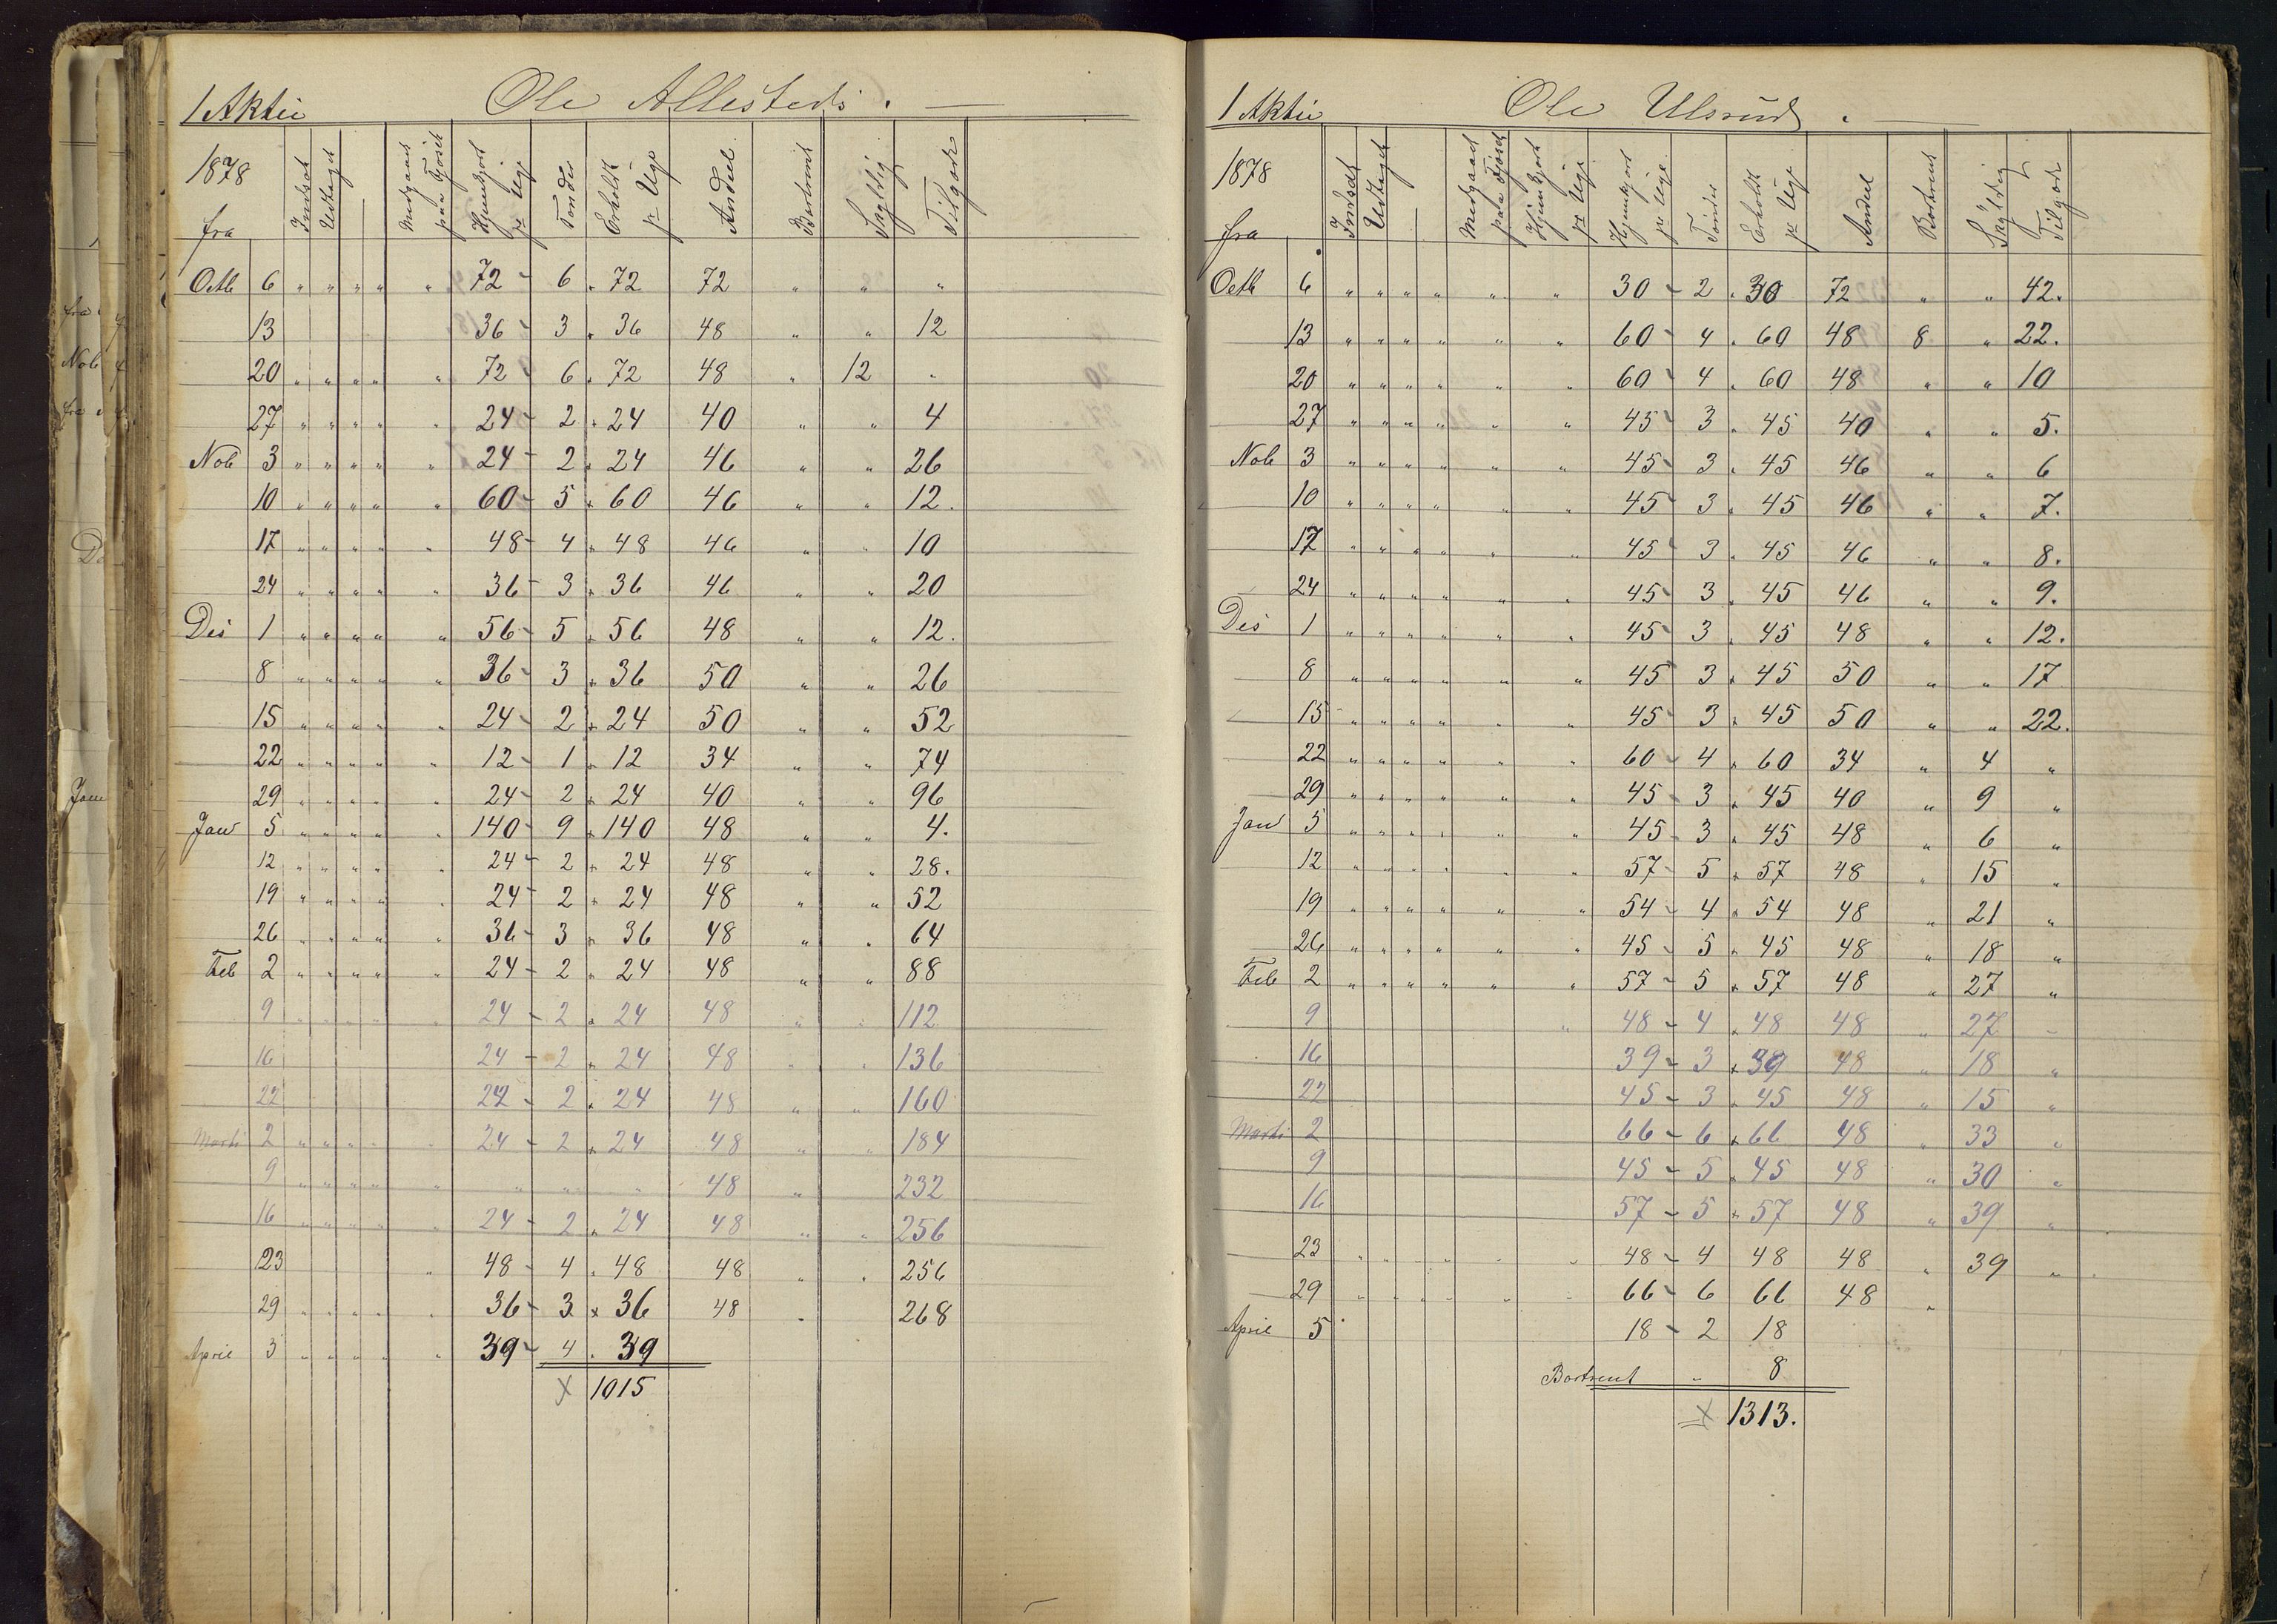 1 Aktie Ole Allesteds.
1878 Indsat Udtaget Medgaaet paa Fjöset Hjemkjort pr Uge Tonder Erholdt pr Uge Andel Bortrent Skyldig Tilgode
fra
Octb 6 " " " " " 72 - 6 " 72 72 " " "
13 36 - 3 " 36 48 " " 12
20 " " " " " 72 - 6 " 72 48 " 12 "
27 " " " " " 24 - 2 " 24 40 " " 4
Nob 3 " " " " " 24 - 2 " 24 46 " " 26
10 " " " " " 60 - 5 " 60 46 " " 12.
17 " " " " " 48 - 4 " 48 46 " " 10
24 " " " " " 36 - 3 " 36 46 " " 20
Des 1 " " " " " 56 - 5 " 56 48 " " 12.
8 " " " " " 36 - 3 " 36 50 " " 26
15 " " " " " 24 - 2 " 24 50 " " 52
22 " " " " " 12 - 1 " 12 34 " " 74
29 " " " " " 24 - 2 " 24 40 " " 96
Jan 5 " " " " " 140 - 9 " 140 48 " " 4.
12 " " " " " 24 - 2 " 24 48 " " 28.
19 " " " " " 24 - 2 " 24 48 " " 52
26 " " " " " 36 - 3 " 36 48 " " 64
Feb 2 " " " " " 24 - 2 " 24 48 " " 88
9 " " " " " 24 - 2 " 24 48 " " 112
16 24 - 2 " 24 48 " " 136
22 24 - 2 " 24 48 " " 160
Marti 2 " " " " " 24 - 2 " 24 48 " " 184
9 " " " " " " " " 48 " 232
16 " " " " " 24 - 2 " 24 48 " " 256
23 " 48 - 4 " 48 48 " " 256
29 " " " " " 36 - 3 x 36 48 " 268
April 3 " " " " " 39 - 4 " 39
x 1015
1 Aktie Ole Ulsrud.
1878 Indsat Udtaget Medgaaet paa Fjöset Hjemkjort pr Uge Hjemkjort pr Uge Tonder Erholdt pr Uge Andel Bortrent Skyldig Tilgode
fra
Octb 6 " " " " " " 30 - 2 " 30 72 " " 42.
13 " " " " " " 60 - 4 " 60 48 8 " 22.
20 " " " " " " 60 - 4 " 60 48 " " 10
27 " " " " " " 45 - 3 " 45 40 " " 5.
Nob 3 " " " " " " 45 - 3 " 45 46 " " 6
10 " " " " " " 45 - 3 " 45 46 " " 7.
17 " " " " " " 45 - 3 " 45 46 " " 8.
24 " " " " " " 45 - 3 " 45 46 " " 9.
Des 1 " " " " " " 45 - 3 " 45 48 " " 12.
8 " " " " " " 45 3 " 45 50 " " 17
15 " " " " " " 45 - 3 " 45 50 " " 22.
22 " " " " " " 60 - 4 " 60 34 " 4 "
29 " " " " " " 45 - 3 " 45 40 " 9 "
Jan 5 " " " " " " 45 - 3 " 45 48 " 6 "
12 " " " " " " 57 - 5 " 57 48 " 15 "
19 " " " " " " 54 - 4 " 54 48 " 21 "
26 " " " " " " 45 - 5 " 45 48 " 18 "
Feb 2 " " " " " " 57 - 5 " 57 48 " 27 "
9 " 48 - 4 " 48 48 " 27 "
16 39 - 3 " 39 48 " 18 "
22 45 - 3 " 45 48 " 15 "
Marti 2 66 - 6 " 66 48 " 33 "
9 45 - 5 " 45 48 " 30 "
16 57 - 5 " 57 48 " 39 "
23 " " " " " " 48 - 4 48 48 " 39 "
29 " " " " " " 66 - 6 66 48 "
April 5 18 - 2 18
Bortrent " 8
x 1313.